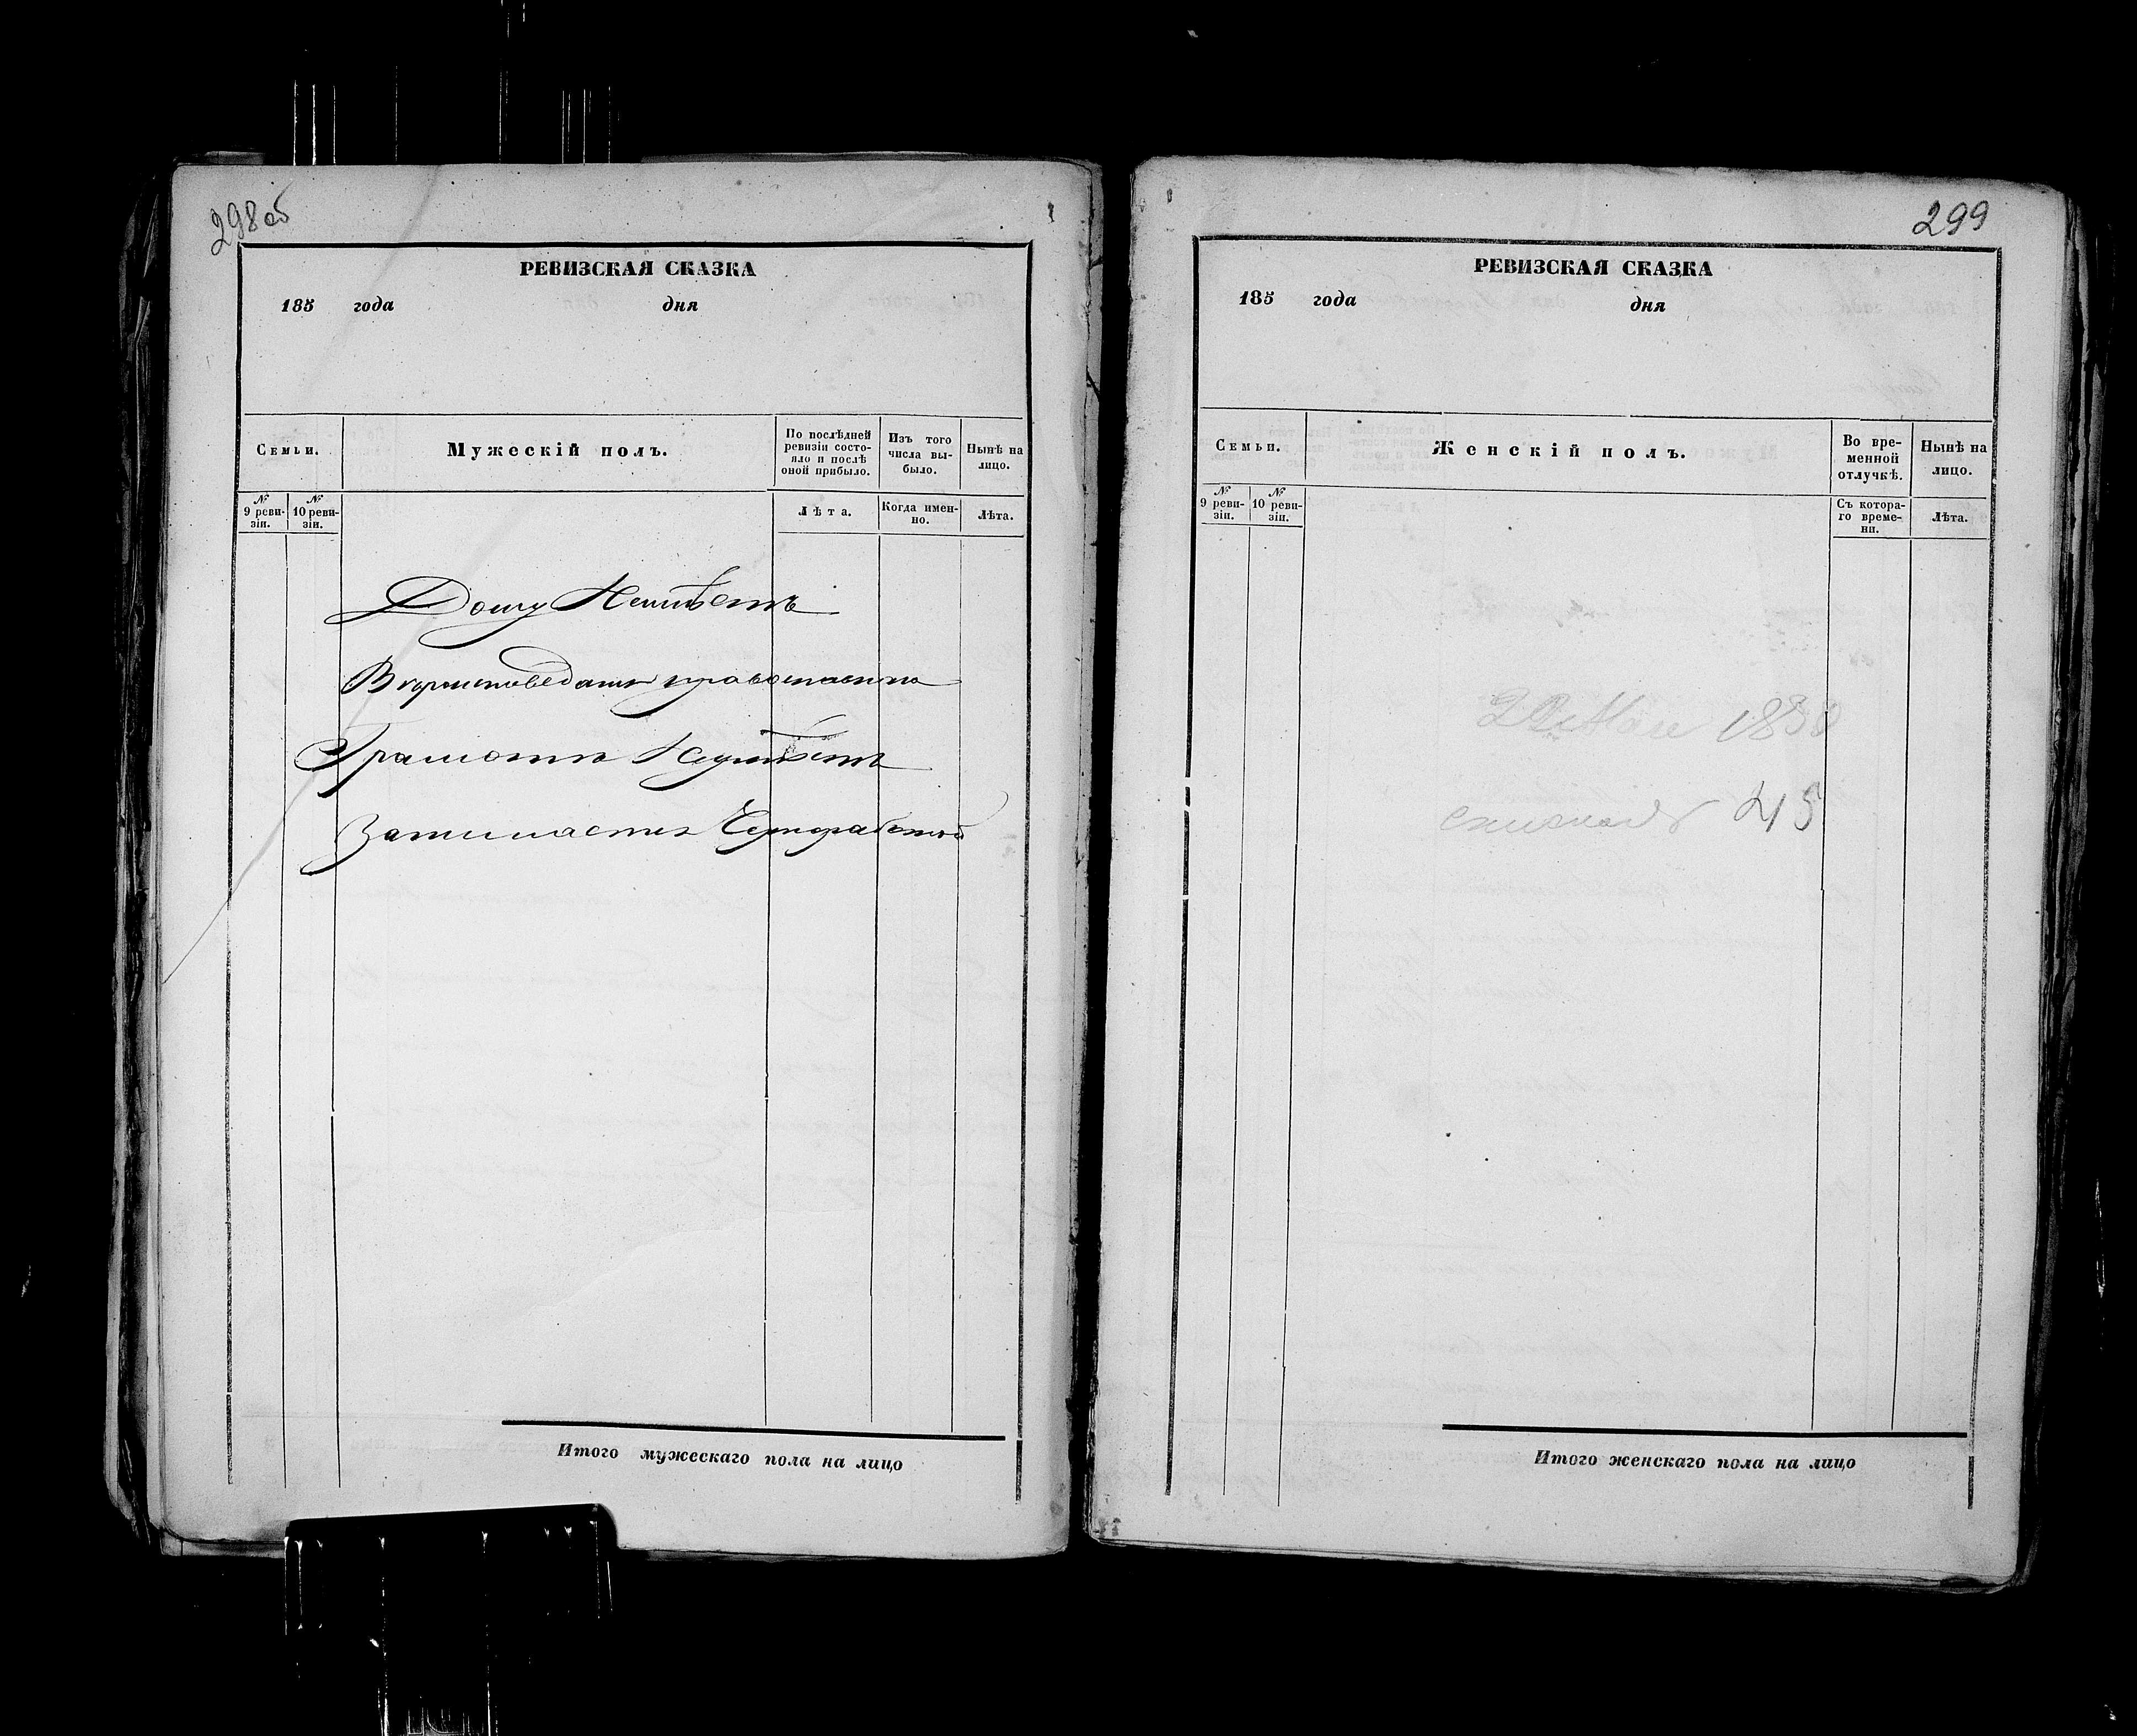 298 об
РЕВИЗСКАЯ СКАЗКА
185 года дня
Семьи.
Мужескій полъ.
По послѣдней
ревизіи состо-
яло и послѣ
оной прибыло.
Изъ того
числа вы-
было.
Нынѣ на
лицо.
№
9 реви-
зіи.
№
10 реви-
зіи.
Лѣта.
Когда имен-
но.
Лѣта.
Дому Неимѣетъ
Вероисповѣданія православнаго
Грамотѣ Неумѣетъ
Занимается Чернорабочей
Итого мужескаго пола на лицо
299
РЕВИЗСКАЯ СКАЗКА
185 года дня
Семьи.
Женскій полъ.
Во вре-
менной
отлучкѣ.
Нынѣ на
лицо.
№
9 реви-
зіи.
№
10 реви-
зіи.
Съ котора-
го време-
ни.
Лѣта.
1858
45
Итого женскаго пола на лицо